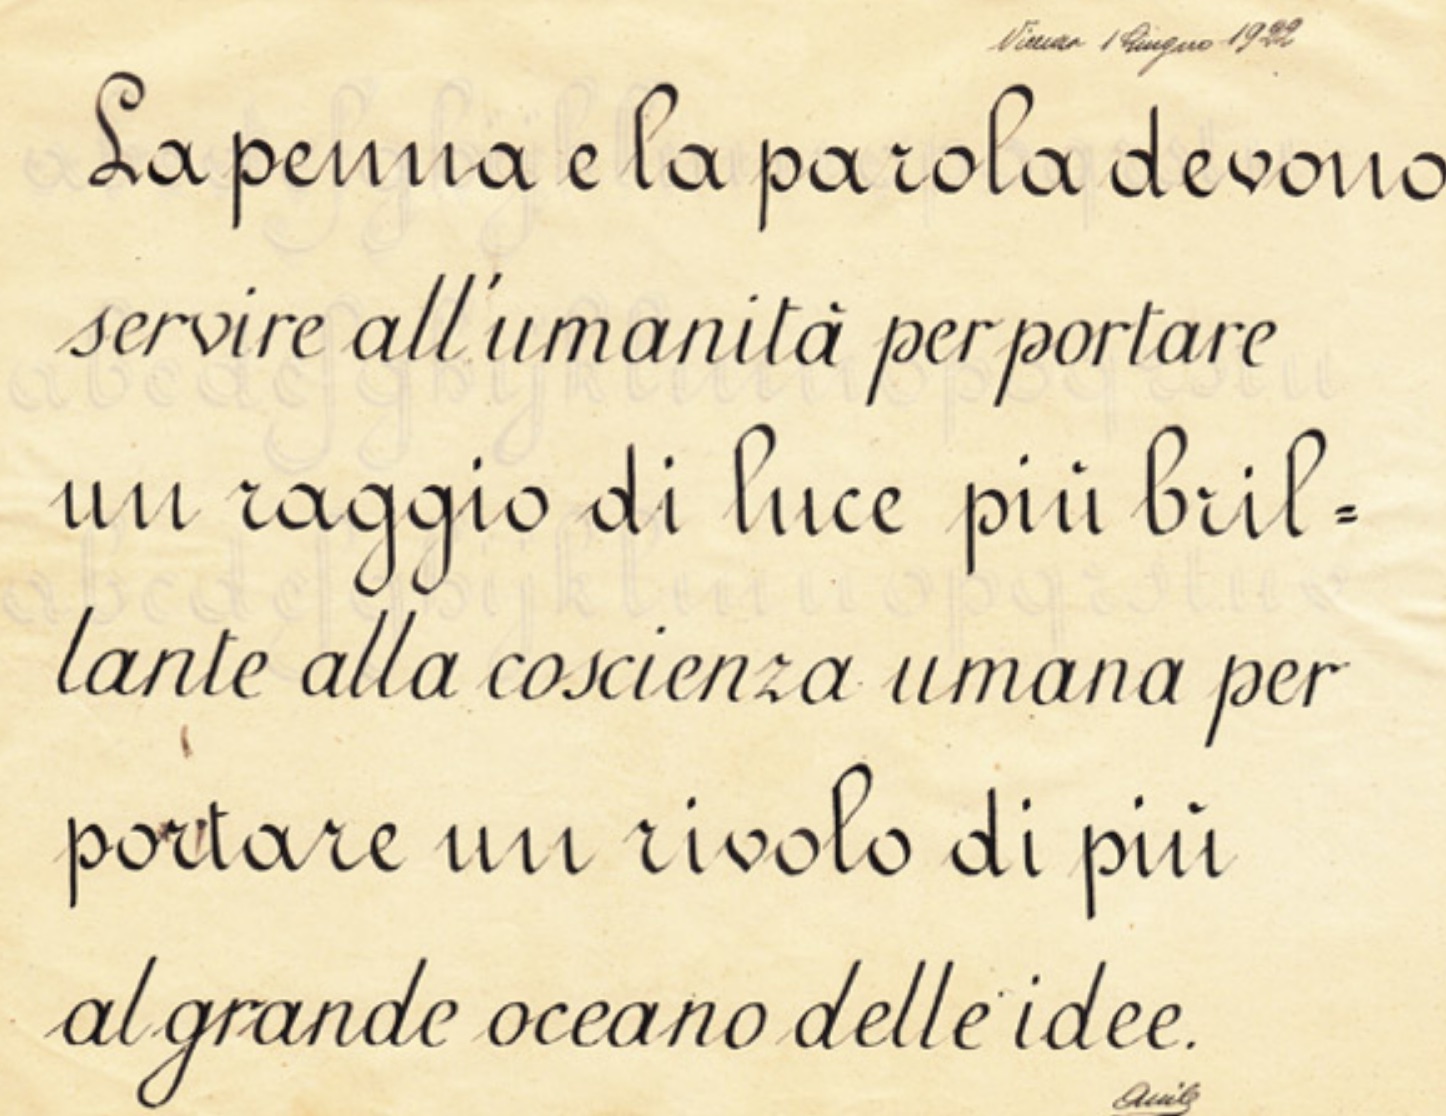 Vicenza 1 Giugno 1922
La penna e la parola devono
servire all'umanità per portare
un raggio di luce più bril=
lante alla coscienza umana per
portare un rivolo di più
al grande oceano delle idee.